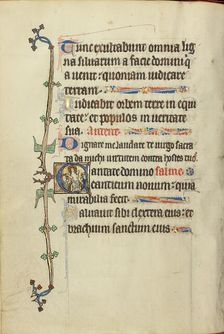 Tunc exultabunt omnia lig
na silvarum a facie domini q
a venit: quoniam iudicare
terram.
Iudicabit orbem terre in equi
tate: et populos in veritate
sua. Antene.
Dignare me laudare te virgo sacra
ta da michi virtutem contra hostes tuos
Cantate domino salme
canticum novum: quia
mirabilia fecit.
Salvavit sibi dextera eius: et
brachium sanctum eius.